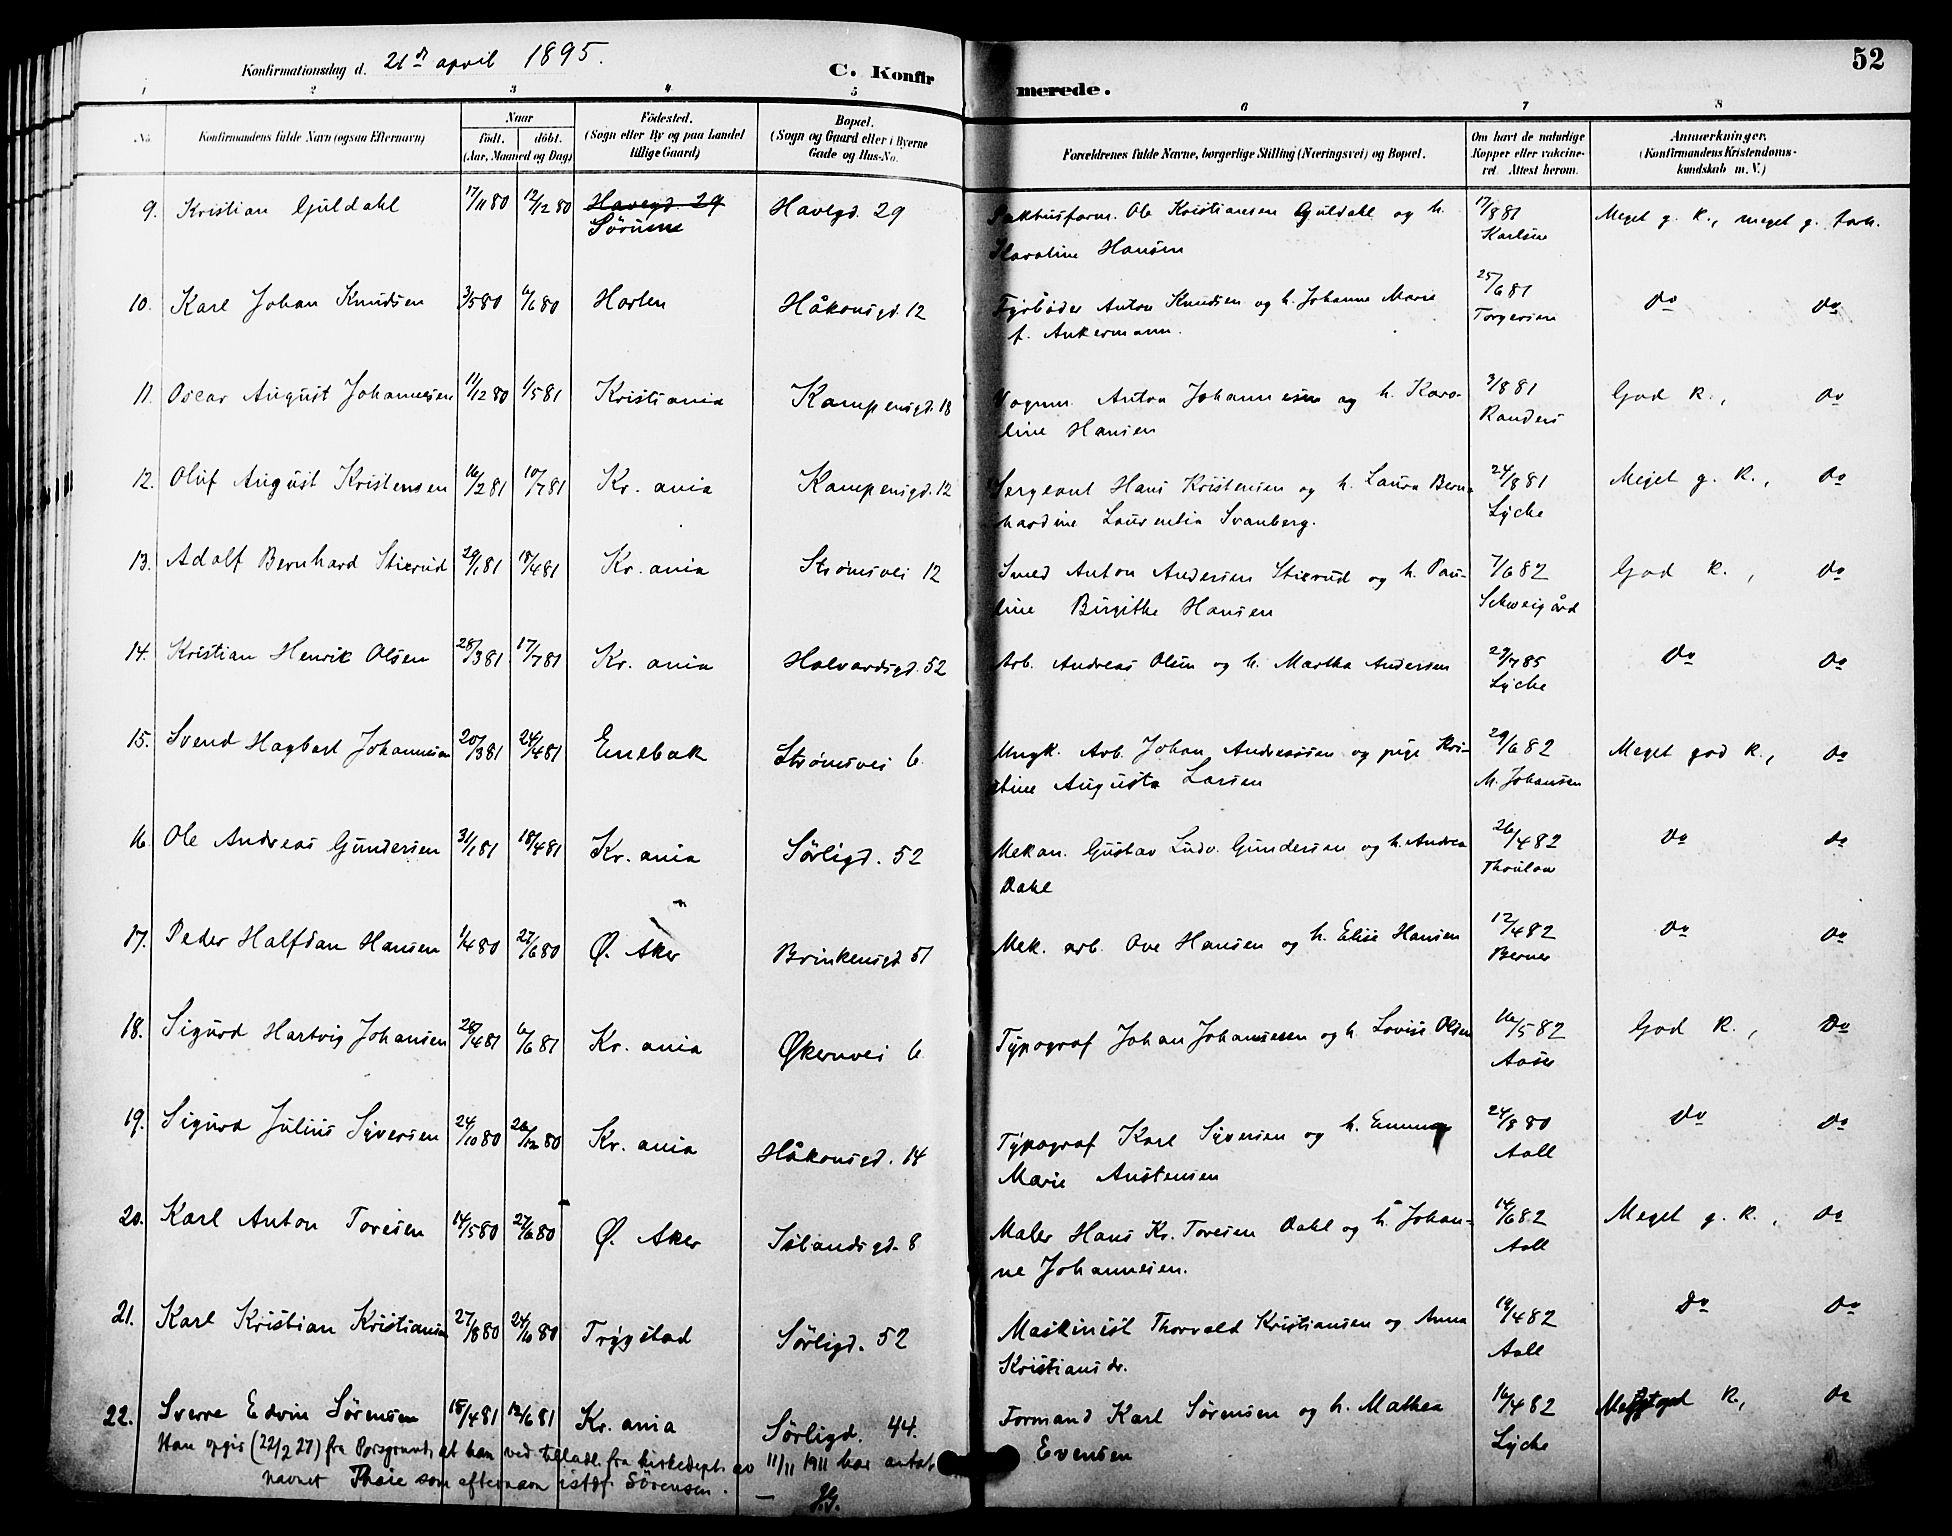 Konfirmationsdag d. 21de april 1895.
C. Konfirmerede.
52
1 2 3 4 5 6 7 8
No. Konfirmandens fulde Navn (ogsaa Efternavn) Naar född. döbt. (Aar, Maaned og Dag) Födested. (Sogn eller By og paa Landet tillige Gaard) Bopæl. (Sogn og Gaard eller i Byerne Gade og Hus-No. Forældrenes fulde Navne, borgerlige Stilling (Næringsvei) og Bopæl. Om havt de naturlige Kopper eller vakcineret. Attest herom. Anmærkninger. (Konfirmandens Kristendomskundskab m. V.)
9. Kristian Guldahl 17/11 80 12/12 80 Havegd. 29 Havegd. 29 Pakhusform. Ole Kristiansen Guldahl og h. 17/8 81 Meget g. K., meget g. forh.
Sørum Karoline Hansen Karlsen
10. Karl Johan Knudsen 3/5 80 6/6 80 Horten Håkonsgd. 12 Fyrbøder Anton Knudsen og h. Johanne Marie 25/6 81 do do
f. Ankermann. Torgersen
11. Oscar August Johannesen 11/12 80 1/5 81 Kristiania Kampensgd. 18 Vognm. Anton Johannesen og h. Karo- 3/8 81 God K., do
line Hansen Randers
12. Oluf August Kristensen 16/2 81 10/7 81 Kr.ania Kampensgd. 12 Sergeant Hans Kristensen og h. Laura Bern- 24/8 81 Meget g. K., do
hardine Laurentia Svanberg. Lyche
13. Adolf Bernhard Stixrud 29/1 81 18/4 81 Kr.ania Strømsvei 12 Smed Anton Andersen Stixrud og h. Pau- 7/6 82 God K., do
line Birgithe Hansen Schweigård
14. Kristian Henrik Olsen 28/3 81 17/7 81 Kr.ania Halvardsgd. 52 Arb. Andreas Olsen og h. Martha Andersen 29/7 85 do do
Lyche
15. Svend Hagbart Johannesen 20/3 81 24/4 81 Enebak Strømsvei 6 Ungk. Arb. Johan Andreassen og pige Kri- 29/6 82 Meget god K., do
stine Augusta Larsen M. Johansen
16. Ole Andreas Gundersen 31/1 81 18/4 81 Kr.ania Sørligd. 52 Mekan. Gustav Ludv. Gundersen og h. Andrea 26/4 82 do do
Dahl Thoulow
17. Peder Halfdan Hansen 1/4 80 27/6 80 Ø. Aker Brinkensgd. 51 Mek. arb. Ove Hansen og h. Elise Hansen 12/4 82 do do
Berner
18. Sigurd Hartvig Johansen 28/4 81 6/6 81 Kr.ania Økernvei 6 Typograf Johan Johannesen og h. Lovise Olsen 16/5 82 God K., do
Aaser
19. Sigurd Julius Syversen 24/10 80 26/12 80 Kr.ania Håkonsgd. 14 Typograf Karl Syversen og h. Emma 24/8 80 do do
Marie Austensen Aall
20. Karl Anton Toresen 14/5 80 27/6 80 Ø. Aker Islandsgd. 8 Maler Hans Kr. Toresen Dahl og h. Johan- 14/6 82 Meget g. K., do
ne Johannesen. Aall
21. Karl Kristian Kristiansen 27/8 80 24/10 80 Trygstad Sørligd. 52 Maskinist Thorvald Kristiansen og Anna 19/4 82 do do
Kristiansdr. Aall
22. Sverre Edvin Sørensen 15/4 81 12/6 81 Kr.ania Sørligd. 44. Formand Karl Sørensen og h. Mathea 16/4 82 K., do
Evensen Lyche
Han opgir (22/2 27) fra Porsgrund, at han ved tillad. fra kirkedept. av 11/11 1911 har antat
navnet Thoie som efternavn istdf. Sørensen. — J.G.